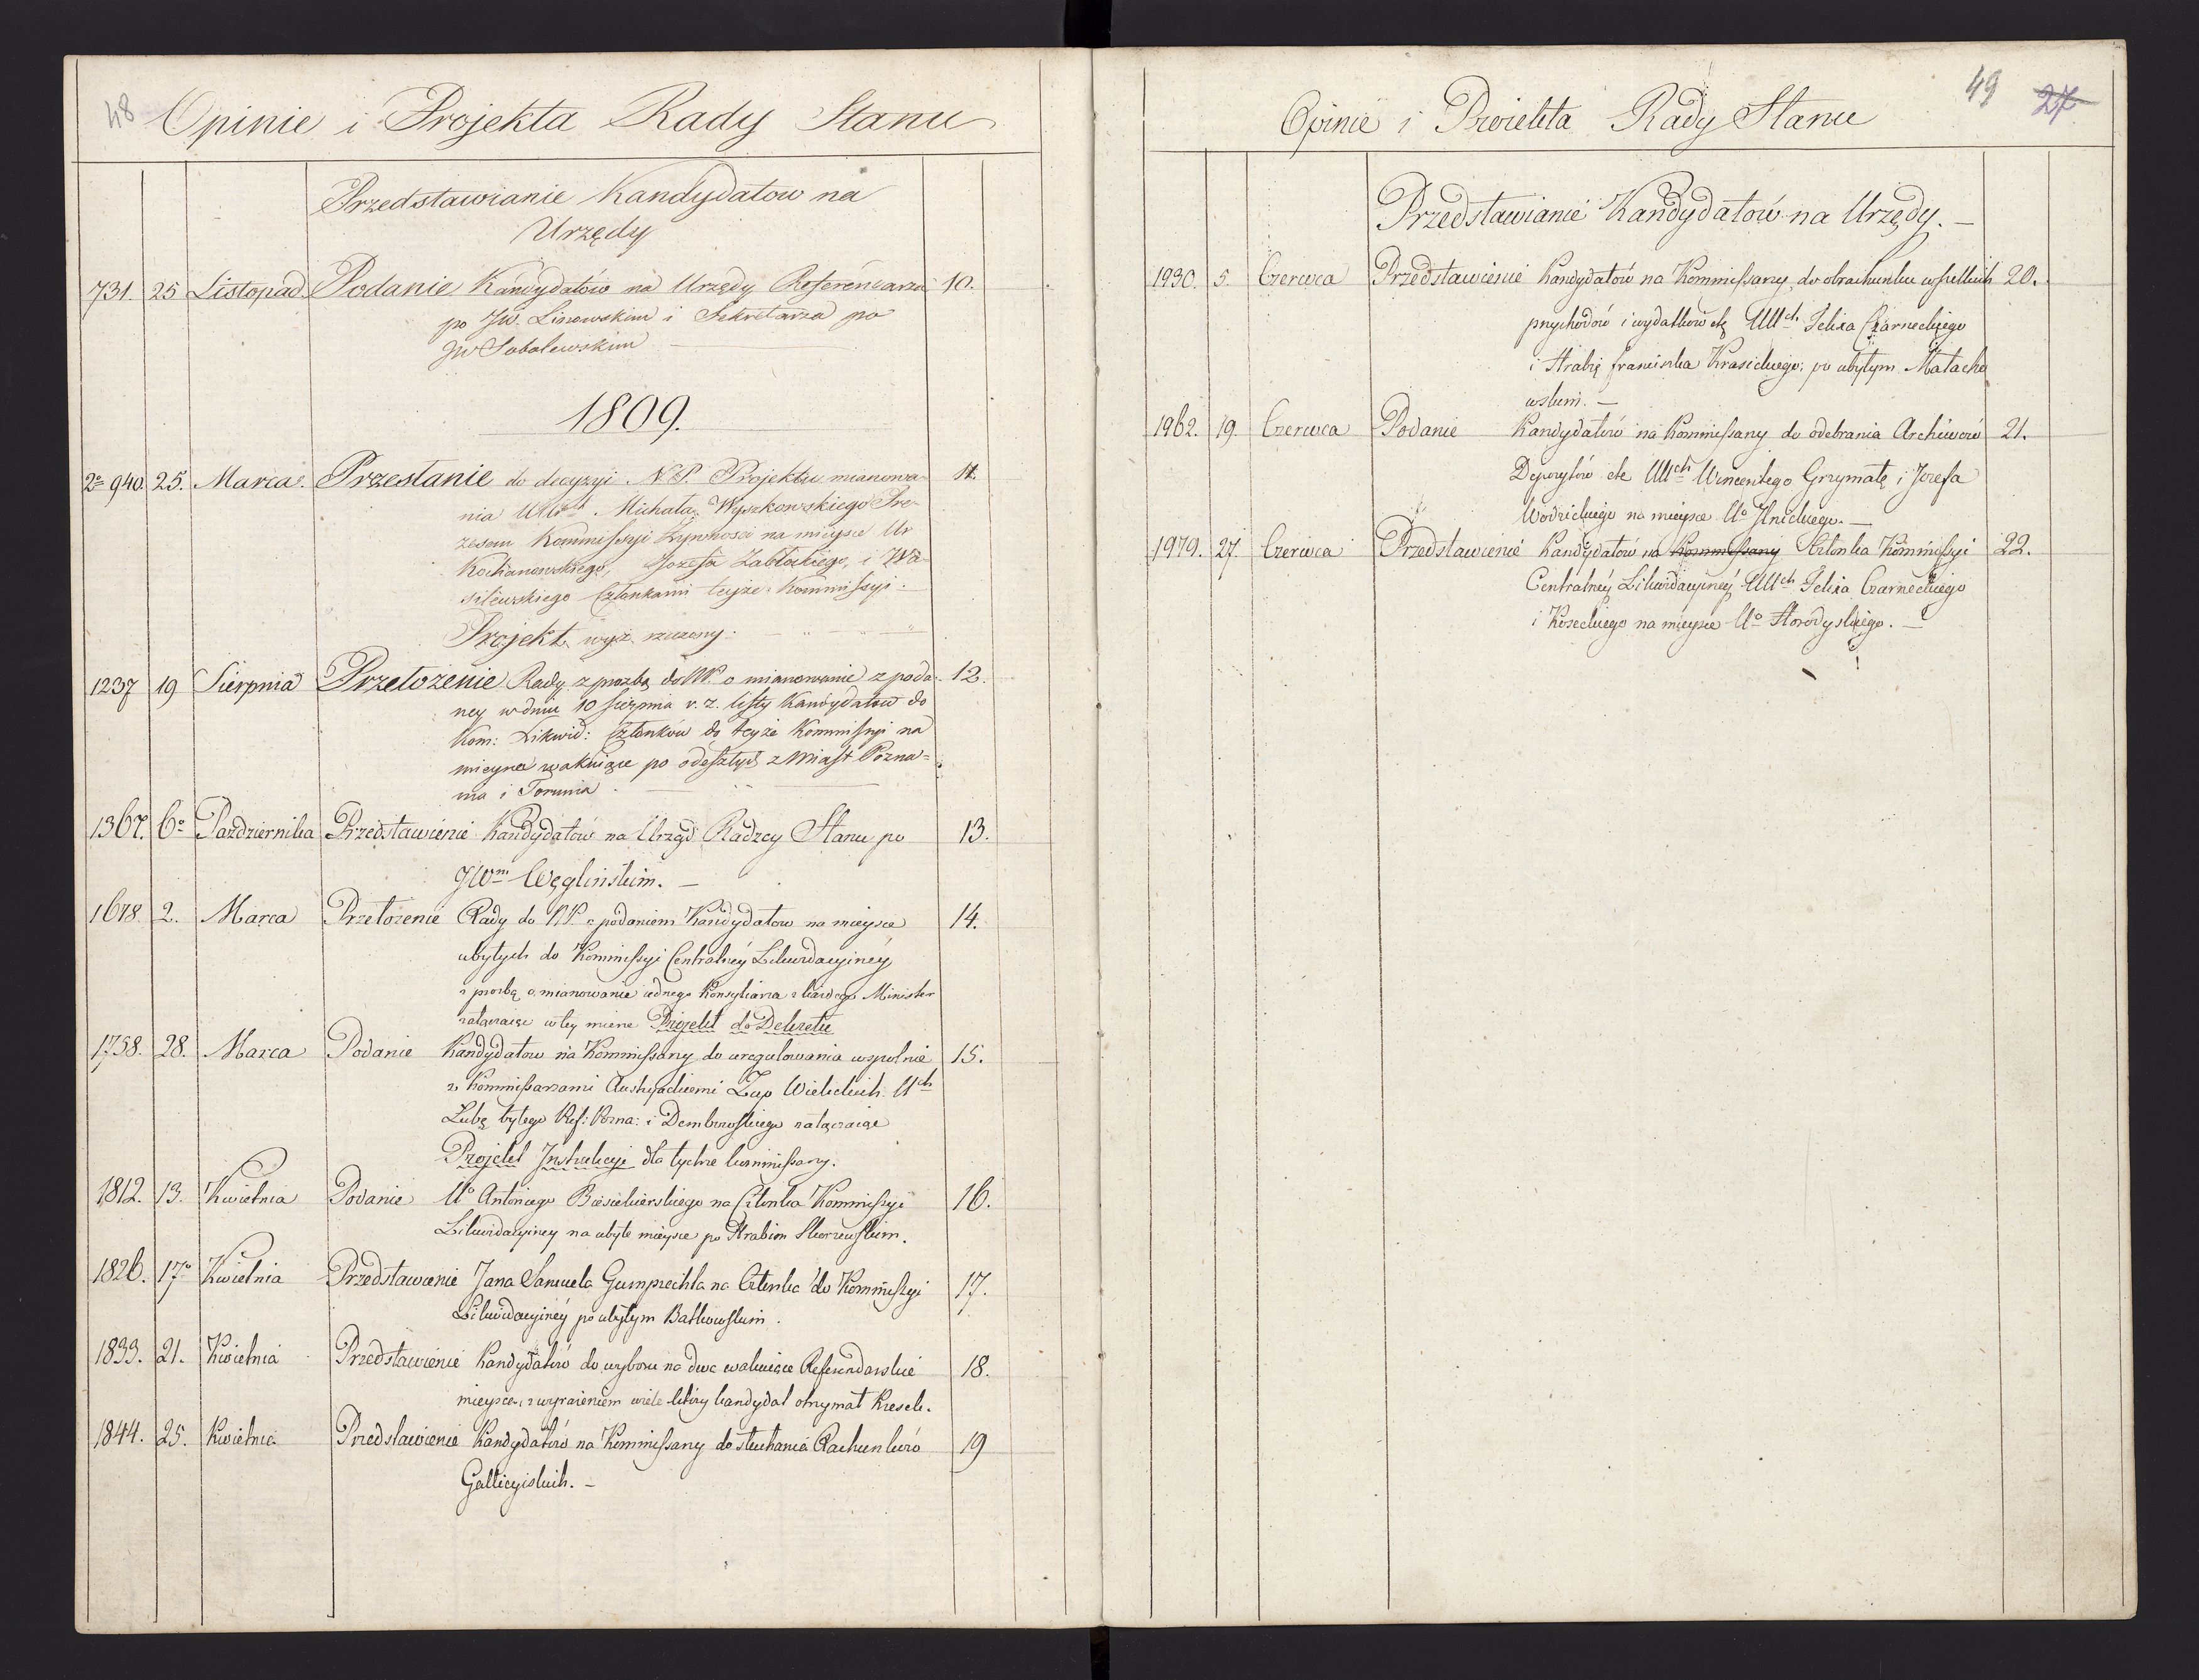 48 Opinie i Projekta Rady Stanu
Przedstawianie Kandydatow na
Urzędy
731. 25 Listopad. Podanie Kandydatów na Urzędy Referendarza 10.
po JW. Linowskim i Sekretarza po
JW Sobolewskim
1809.
2o 940. 25. Marca. Przesłanie do decyzyi N.P. Projektu mianowa- 11.
nia Michała Wyszkowskiego Pre-
zesem Kommissyi Żywności na mieysce Ur
Kochanowskiego, Jozefa Zabłockiego, i Wa-
silewskiego Członkami teyże Kommissyi.
Projekt wyż. rzeczony.
1237 19 Sierpnia Przełożenie Rady z prozbą do NP. o mianowanie z poda- 12.
ney w dniu 10 Sierpnia r. z. listy Kandydatow do
Kom: Likwid: Członków do teyże Kommissyi na
mieysca wakuiące po odeszłych z Miast Pozna=
nia i Torunia.
1367. 6o Pazdziernika Przedstawienie Kandydatów na Urząd Radzcy Stanu po 13.
JWm Węglinskim. —
1678. 2. Marca Przełożenie Rady do NP. z podaniem Kandydatow na mieysce 14.
ubyłych do Kommissyi Centralnéy Likwidacyinéy
z prozbą o mianowanie iednego Konsyliarza z każdego Minister
załączaiąc w tey mierze Projekt do Dekretu
1758. 28. Marca Podanie Kandydatow na Kommissarzy do uregulowania wspolnie 15.
z Kommissarzami Austryackiemi Żup Wielickich Uch
Lubę byłego Ref: Pozna: i Dembowskiego załączaiąc
Projekt Instrukcyi dla tychże kommissarzy.
1812. 13. Kwietnia Podanie Uo Antoniego Biesiekierskiego na Członka Kommissyi 16.
Likwidacyiney na ubyłe mieysce po Hrabim Skorzewskim.
1826. 17o Kwietnia Przedstawienie Jana Samuela Gumprechta na Członka do Kommissyi 17.
Likwidacyinéy po ubyłym Batkowskim.
1833. 21. Kwietnia Przedstawienie Kandydatów do wyboru na dwa wakuiące Referendarskie 18.
mieysca, z wyrażeniem wiele który kandydat otrzymał Kresek.
1844. 25. Kwietnia Przedstawienie Kandydatów na Kommissarzy do słuchania Rachunków 19
Gallicyiskich. —
49 27
Opinie i Proiekta Rady Stanu
Przedstawianie Kandydatów na Urzędy. —
1930. 5. Czerwca Przedstawienie Kandydatów na Kommissarzy do obrachunku wszelkich 20.
przychodów i wydatków etc UUch Felixa Czarneckiego
i Hrabię Franciszka Krasickiego, po ubyłym Małacho
wskim. —
1962. 19. Czerwca Podanie Kandydatów na Kommissarzy do odebrania Archiwów 21.
Depozytów etc UUch Wincentego Grzymałę i Jozefa
Wodzickiego na mieysce Uo Ilnickiego. —
1979. 27. Czerwca Przedstawienié Kandydatów na Kommissarzy Członka Kommissyi 22.
Centralnéy Likwidacyinéy UUch Felixa Czarneckiego
i Koseckiego na mieysce Uo Horodyskiego. —